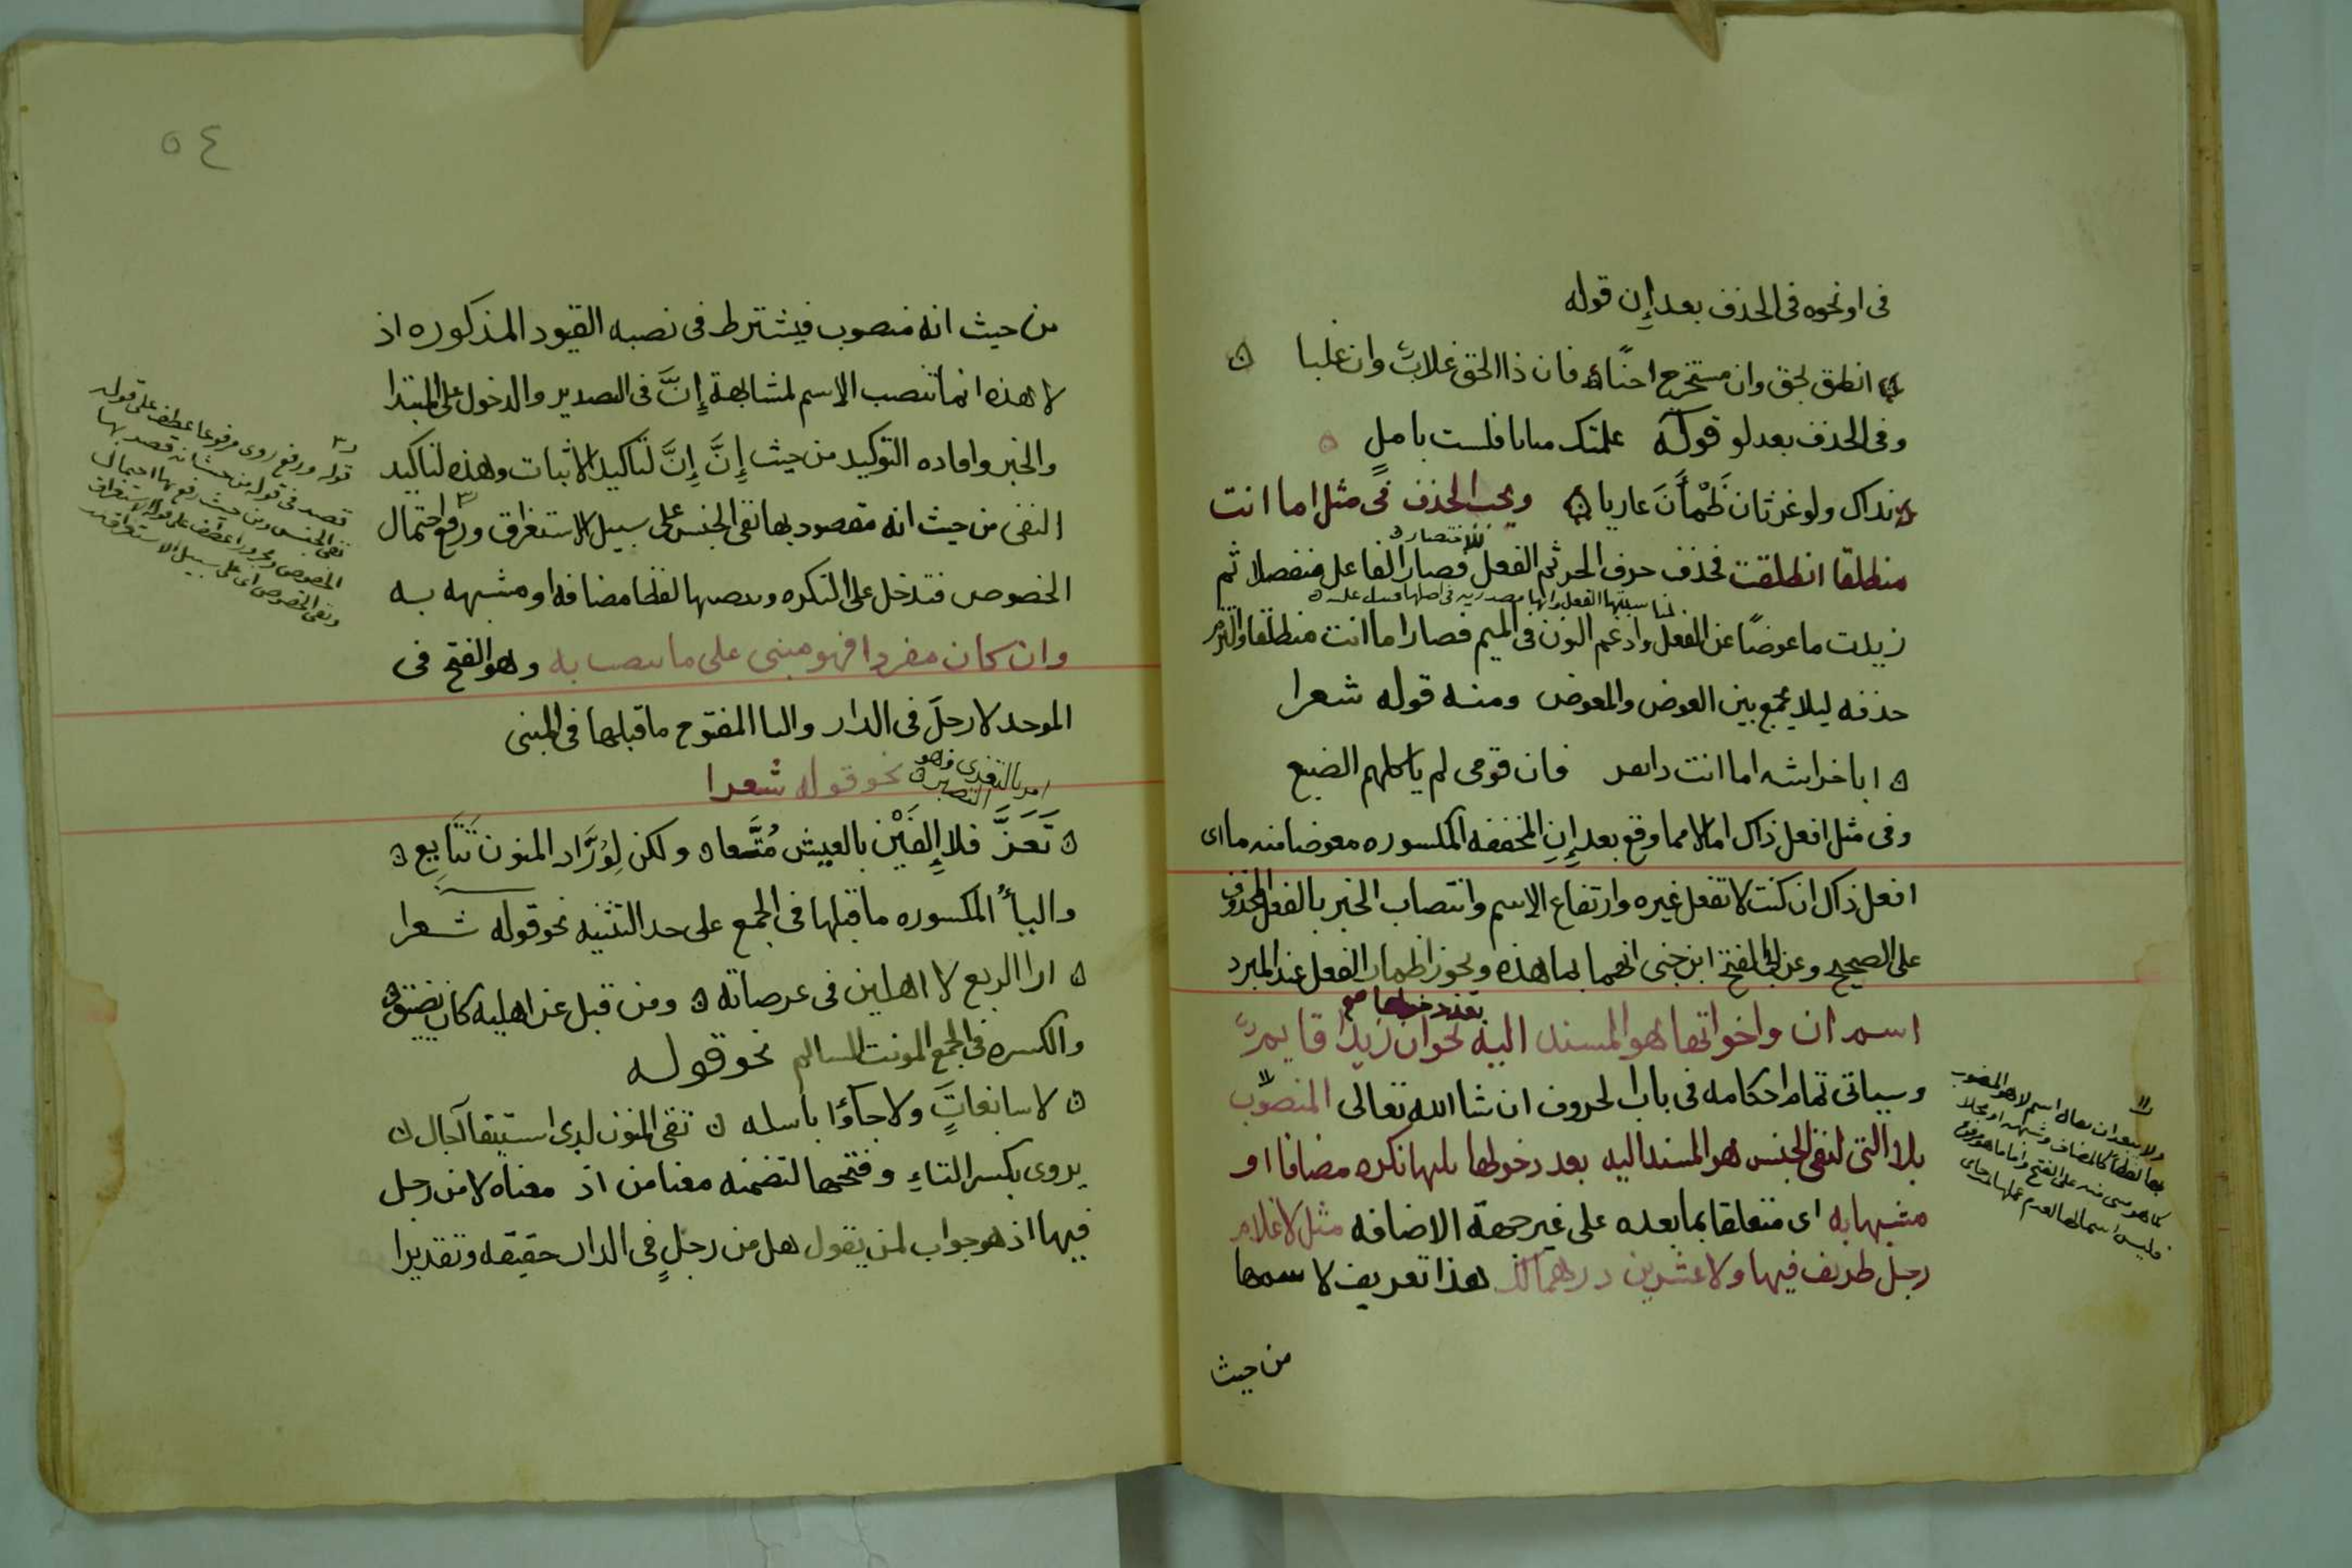 فى او نحوه فى الحذف بعد إِن قوله
انطق بحق وان مستخرج احنًا فان ذا الحق غلاب وان غلبا
وفى الحذف بعد لو قوله علمتك منانا فلست بامل
نداك ولو غرثان ظَمْأَنَ عاريا ويجب الحذف فى مثل اما انت
منطلقا انطلقت فحذف حرف الجر ثم الفعل للاختصار فصار الفاعل منفصلا ثم
زيدت ما عوضًا عن الفعل وادغم النون فى الميم فصار اما انت منطلقا والتزم
حذفه ليلا يجمع بين العوض والمعوض ومنه قوله شعرا
ابا خراشه اما انت ذا نفر فان قومى لم ياكلهم الضبع
وفى مثل افعل ذاك اما لا مما وقع بعد إِنِ المخففه المكسوره معوضا منه ما اى
افعل ذاك ان كنت لا تفعل غيره وارتفاع الاسم وانتصاب الخبر بالفعل المحذوف
على الصحيح وعن ابى الفتح ابن جنى انهما بما هذه ويجوز اظهار الفعل عند المبرد
اسم ان واخواتها هو المسند اليه بعد دخولها نحو ان زيدا قايم
وسياتى تمام احكامه فى باب الحروف ان شا الله تعالى المنصوب
بلا التى لنفى الجنس هو المسند اليه بعد دخولها يليها نكره مضافا او
مشبها به اى متعلقا بما بعده على غير جهة الاضافه مثل لا غلام
رجل ظريف فيها ولا عشرين درهما لك هذا تعريف لا سمها
ولا يبعد ان يقال اسم لا هو المنصوب
بها لفظا كالمضاف وشبهه او محلا
كما هو مبنى منه على الفتح واما ما هو مرفوع
فليس اسما لها لعدم عملها
من حيث
٥٤
من حيث انه منصوب فيشترط فى نصبه القيود المذكوره اذ
لا هذه انما تنصب الاسم لمشابهة إِنَّ فى التصدير والدخول على المبتدا
والخبر وافاده التوكيد من حيث إِنَّ إِنَّ لتاكيد الاثبات وهذه لتاكيد
النفى من حيث انه مقصود بها نفى الجنس على سبيل الاستغراق ورفع احتمال
الخصوص فتدخل على النكره وتنصبها لفظا مضافه او مشبهه به
وان كان مفردا فهو مبنى على ما ينصب به وهو الفتح فى
الموحد لا رجلَ فى الدار واليا المفتوح ما قبلها فى المبنى
امر بالتعزى وهو التصبر نحو قوله شعرا
تَعَزَّ فلا إِلفَيْن بالعيش مُتَّعا ولكن لِوُرَّاد المنون تَتَابِع
والياُ المكسوره ما قبلها فى الجمع على حد التثنيه نحو قوله شعرا
ارا الربع لا اهلين فى عرصاته ومن قبل عن اهليه كان يضيق
والكسره فى الجمع المونث السالم نحو قوله
لا سابغاتٍَ ولا جاؤا باسله تقى المنون لدى استيفا آجال
يروى بكسر التاءِ وفتحها لتضمنه معنا من اذ معناه لا من رجل
فيها اذ هو جواب لمن يقول هل من رجلٍ فى الدار حقيقه وتقديرا
قوله ورفع روى مرفوعا عطف على قوله
قصد فى قوله من حيث انه قصد بها
نفى الجنس ومن حيث رفع بها احتمال
الخصوص ومجرورا عطف على قوله الاستغراق
ونفى الخصوص اى على سبيل الاستغراق